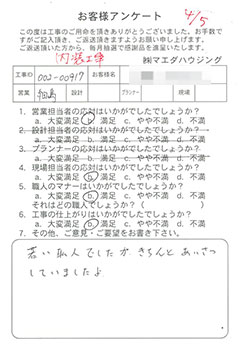 お客様アンケート
4/5
この度は工事のご用命を頂きありがとうございました。お手数で
すがご記入頂き、ご返送頂きますようお願い申し上げます。
ご返送頂いた方から、毎月抽選で感謝品を進呈いたします。
内装工事
㈱マエダハウジング
工事ID 002-00917 お客様名
営業 細島 設計 プランナー 現場
1. 営業担当者の応対はいかがでしたでしょうか？
a. 大変満足 b. 満足 c. やや不満 d. 不満
2. 設計担当者の応対はいかがでしたでしょうか？
a. 大変満足 b. 満足 c. やや不満 d. 不満
3. プランナーの応対はいかがでしたでしょうか？
a. 大変満足 b. 満足 c. やや不満 d. 不満
4. 現場担当者の応対はいかがでしたでしょうか？
a. 大変満足 b. 満足 c. やや不満 d. 不満
5. 職人のマナーはいかがでしたでしょうか？
a. 大変満足 b. 満足 c. やや不満 d. 不満
それはどの職人でしょうか？（ ）
6. 工事の仕上がりはいかがでしたでしょうか？
a. 大変満足 b. 満足 c. やや不満 d. 不満
7. その他、ご意見・ご要望をお書き下さい。
若い職人でしたが きちんと あいさつ
していましたよ